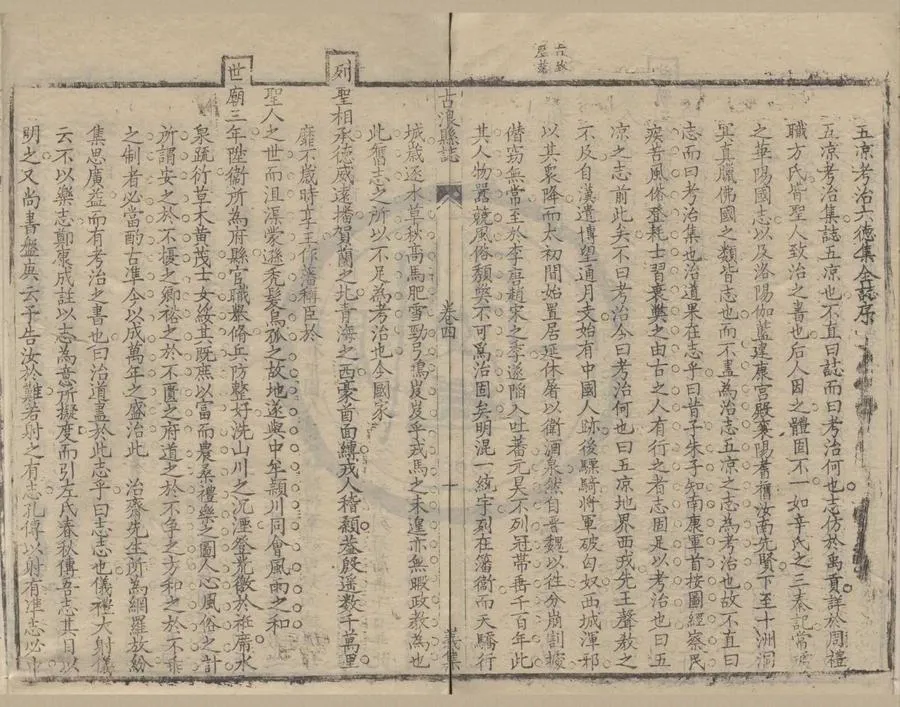 五凉考治六德集全誌序
五凉考治集誌五凉也不直曰誌而曰考治何也志仿於禹貢詳於周禮
職方氏皆聖人致治之書也后人因之體固不一如辛氏之三秦記常璩
之華陽國志以及洛陽伽藍建康宮殿襄陽耆舊汝南先賢下至十洲洞
冥真臘佛國之類皆志也而不盡為治志五凉之志為考治也故不直曰
志而曰考治集也治道果在志乎曰昔子朱子知南康軍首按圖經察民
疾苦風俗登耗士習衰興之由古之人有行之者志固足以考治也曰五
凉之志前此矣不曰考治今曰考治何也曰五凉地界西戎先王聲教之
不及自漢遣博望通月支始有中國人跡後驃騎將軍破匈奴西域渾邪
以其眾降而太初間始置居延休屠以衛酒泉然自晋魏以往分崩割據
僭窃無常至於李唐趙宋之季遂陷入吐蕃元昊不列冠帶者千百年此
其人物囂競風俗頹獘不可為治固矣明混一統宇列在籓衛而天驕行
古浪縣誌
卷四
十
義集
城歲逐水草秋高馬肥雪勁弓鳴岌岌乎戎馬之未遑亦無暇政教為也
此舊志之所以不足為考治也今國家
列聖相承德威遠播賀蘭之北青海之西豪酋面縛戎人稽顙蓋殷遥数千萬里
靡不歲時享王作藩稱臣於
聖人之世而沮渠蒙遜禿髮烏孤之故地遂與中牟潁川同會風雨之和
世廟三年陞衞所為府縣官職舉脩兵防整好洗山川之沉湮登荒徼於袵席水
泉疏衍草木黄茂士女綏其既庶以富而農桑禮樂之圖人心風俗之計
所謂安之於不擾之鄉裕之於不匱之府道之於不争之方和之於不乖
之制者必當酌古准今以成萬年之盛治此 治齋先生所為網羅放紛
集思廣益而有考治之書也曰治道盡於此志乎曰志志也儀禮大射儀
云不以樂志鄭康成註以志為意所擬度而引左氏春秋傳吾志其目以
明之又尚書盤庚云予告汝於難若射之有志孔傳以射有準志必中